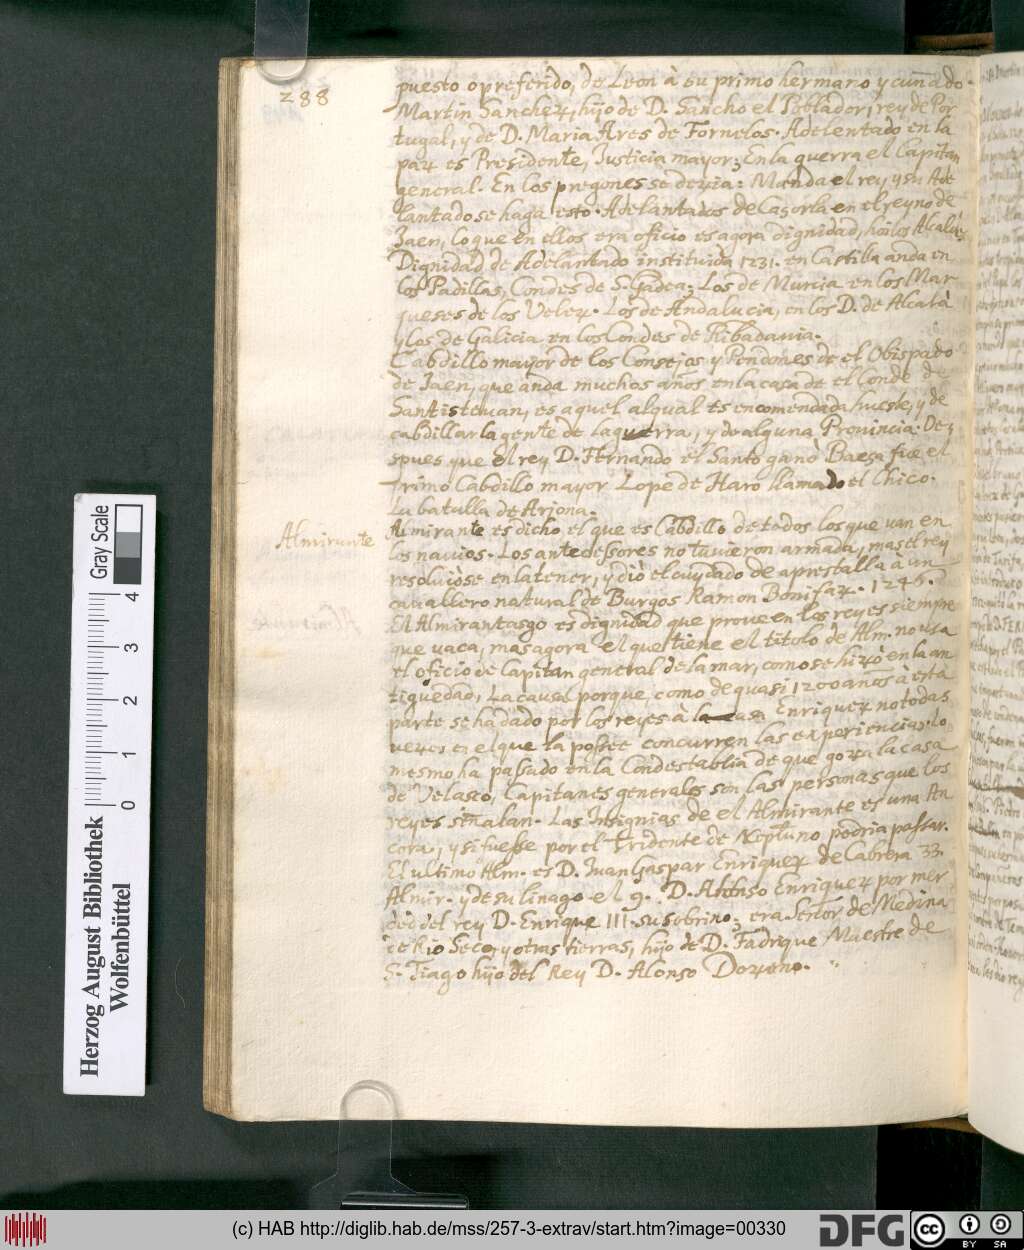 288
puesto o preferido, de Leon à su primo hermano y cuñado
Martin Sanchez, hijo de D. Sancho el Poblador, rey de Por
tugal, y de D. Maria Ares de Fornelos. Adelentado en la
paz es Presidente, Justicia mayor; En la guerra el Capitan
general. En los pregones se dezia: Manda el rey y su Ade
lantado se haga esto. Adelantados de Caçorla en el reyno de
Jaen, lo que en ellos era oficio es agora dignidad,
Dignidad de Adelantado instituida 1231. en Castilla anda en
los Padillas, Condes de S. Gadea; Los de Murcia en los Mar
queses de los Velez. Los de Andalucia, en los D. de Alcalà
y los de Galicia en los Condes de Ribadavia.
Cabdillo mayor de los Consejos y Pendones de el Obispado
de Jaen, que anda muchos años en la casa de el Conde de
Santistevan, es aquel al qual es encomendada hueste, y de
cabdillar la gente de la guerra, y de alguna Provincia. De,
spues que el rey D. Fernando el Santo ganò Baeça fue el
primo Cabdillo mayor Lope de Haro llamado el Chico.
La batalla de Arjona.
Almirante
Almirante es dicho el que es Cabdillo de todos los que van en
los navios. Los antecessores no tuvieron armada, mas el rey
resolviòse en la tener, y diò el cuydado de aprestalla a un
cavallero natural de Burgos Ramon Bonifaz. 1246.
El Almirantasgo es dignidad que proveen los reyes siempre
que vaca, mas agora el que tiene el titolo de Alm. no usa
el oficio de Capitan general de la mar, como se hizò en la an
tiguedad, La causa porque, como de quasi 1200 años à esta
parte se ha dado por los reyes à la casa Enriquez no todas
vezes en el que la possee concurren las experiencias. lo
mesmo ha passado en la Condestablia de que goza la casa
de Velasco, Capitanes generales son las personas que los
reyes señalan. Las Insignias de el Almirante es una An
cora, y si fuesse por el Tridente de Neptuno podria passar.
El ultimo Alm. es D. Juan Gaspar Enriquez de Cabrera 33.
Almir. y de su linage el 9. D. Alfonso Enriquez por mer
ced del rey D. Enrique III. su sobrino; era Señor de Medina
de Rio Seco, y otras tierras, hijo de D. Fadrique Maestre de
S. Tiago hijo del Rey D. Alonso Dozeno.
Gray Scale
0 1 2 3 4
Herzog August Bibliothek
Wolfenbüttel
(c) HAB http://diglib.hab.de/mss/257-3-extrav/start.htm?image=00330
DFG
cc BY SA